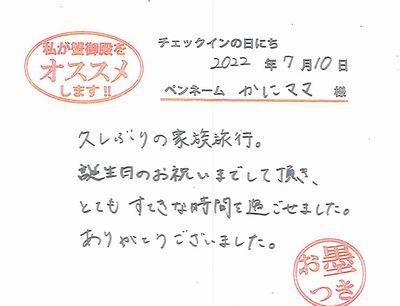 私が蟹御殿を
オススメ
します!!
チェックインの日にち
2022 年 7 月 10 日
ペンネーム かにママ 様
久しぶりの家族旅行。
誕生日のお祝いまでして頂き、
とても すてきな時間を過ごせました。
ありがとうございました。
お墨
つき